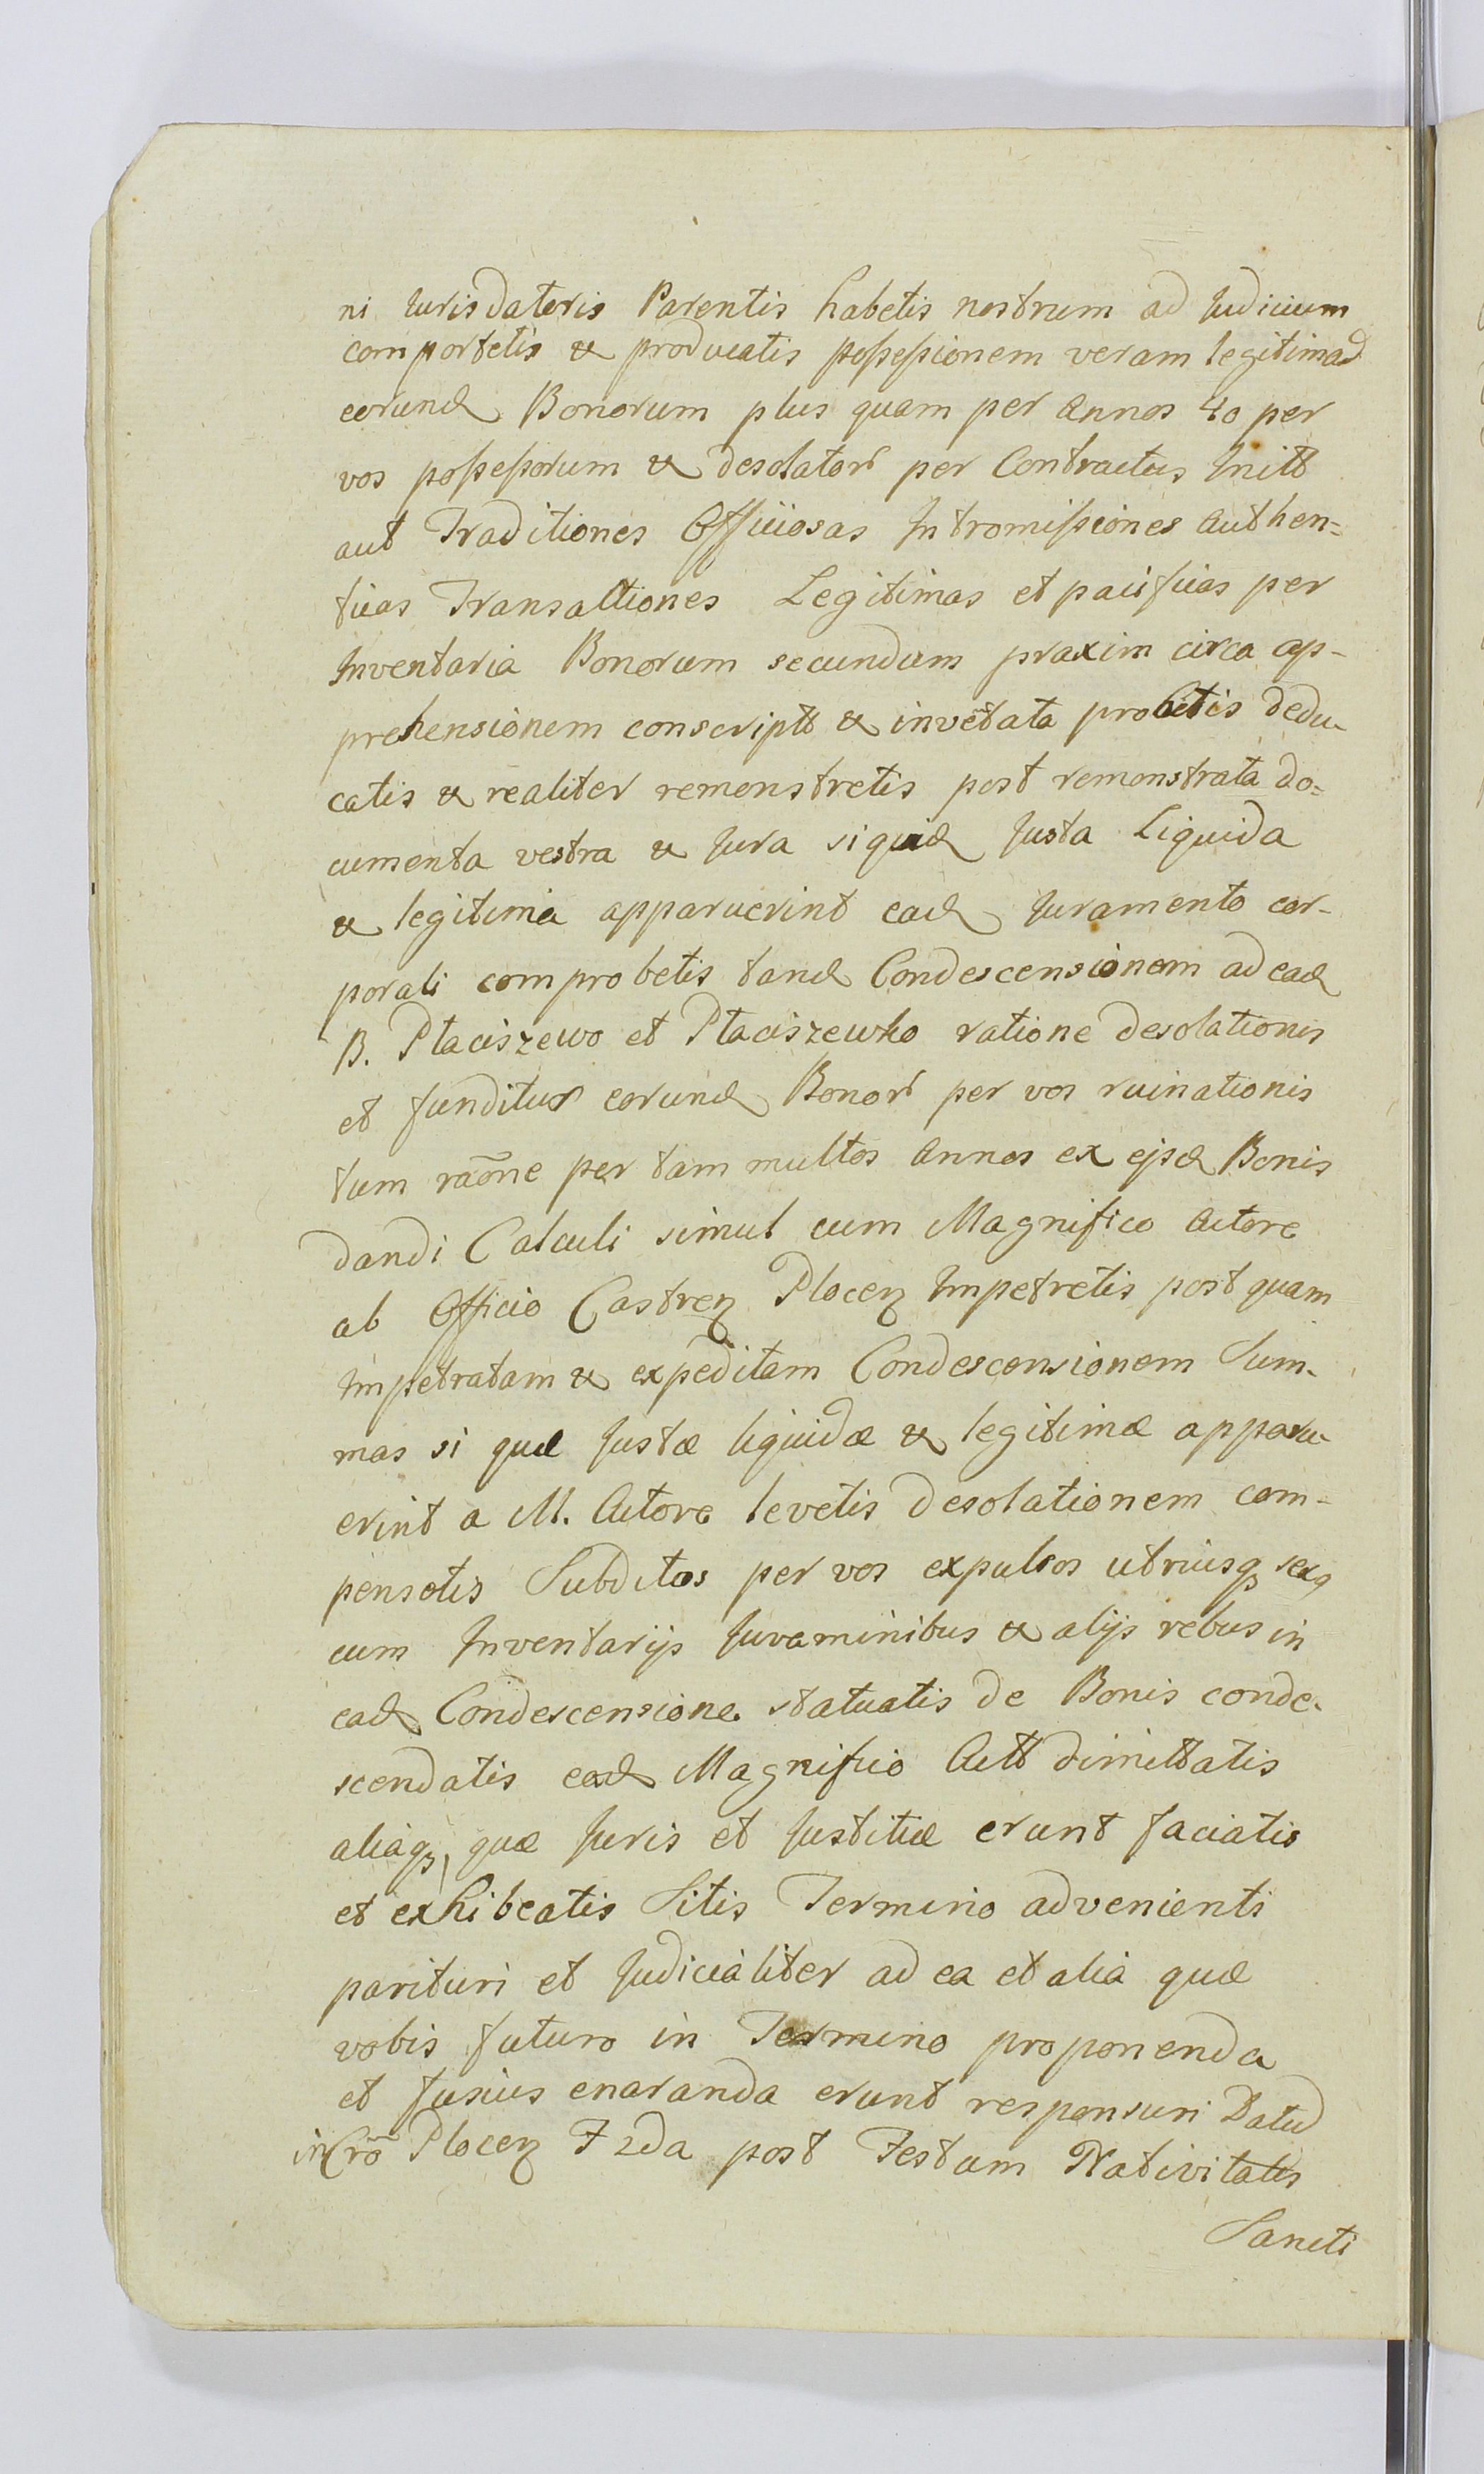 ni Jurisdatoris Parentis habetis nostrum ad Judicium
comportetis & producatis possessionem veram legitimad
eorund Bonorum plus quam per Annos 40 per
vos possessorum & desolator per Contractus Initt
aut Traditiones Officiosas Intromissiones Authen=
ticas Transactiones Legitimas et pacificas per
Inventaria Bonorum secundum praxim circa ap-
prehensionem conscriptt & invetata probetis dedu-
catis & realiter remonstretis post remonstrata do=
cumenta vestra & Jura siquid Justa Liquida
& legitima apparuerint ead Juramento cor-
porali comprobetis tand Condescensionem ad ead
B. Ptaciszewo et Ptaciszewko ratione desolationis
et funditus eorund Bonor per vos ruinationis
tum raõne per tam multos Annos ex ejsd Bonis
dandi Calculi simul cum Magnifico Actore
ab Officio Castren Plocen Impetretis post quam
Impetratam & expeditam Condescensionem Sum-
mas si quæ Justæ liquidæ & legitimæ apparu-
erint a M. Actore levetis desolationem com-
pensetis Subditos per vos expulsos utriusq sexq
cum Inventarijs Juvaminibus & alijs rebus in
ead Condescensione statuatis de Bonis conde-
scendatis ead Magnifico Actt dimittatis
aliaq, quæ Juris et Justitiæ erunt faciatis
et exhibeatis Sitis Termino advenienti
parituri et Judicialiter ad ea et alia quæ
vobis futuro in Termino proponenda
et fusius enaranda erunt responsuri Datud
in Crõ Plocen F 2da post Festum Nativitatis
Sancti